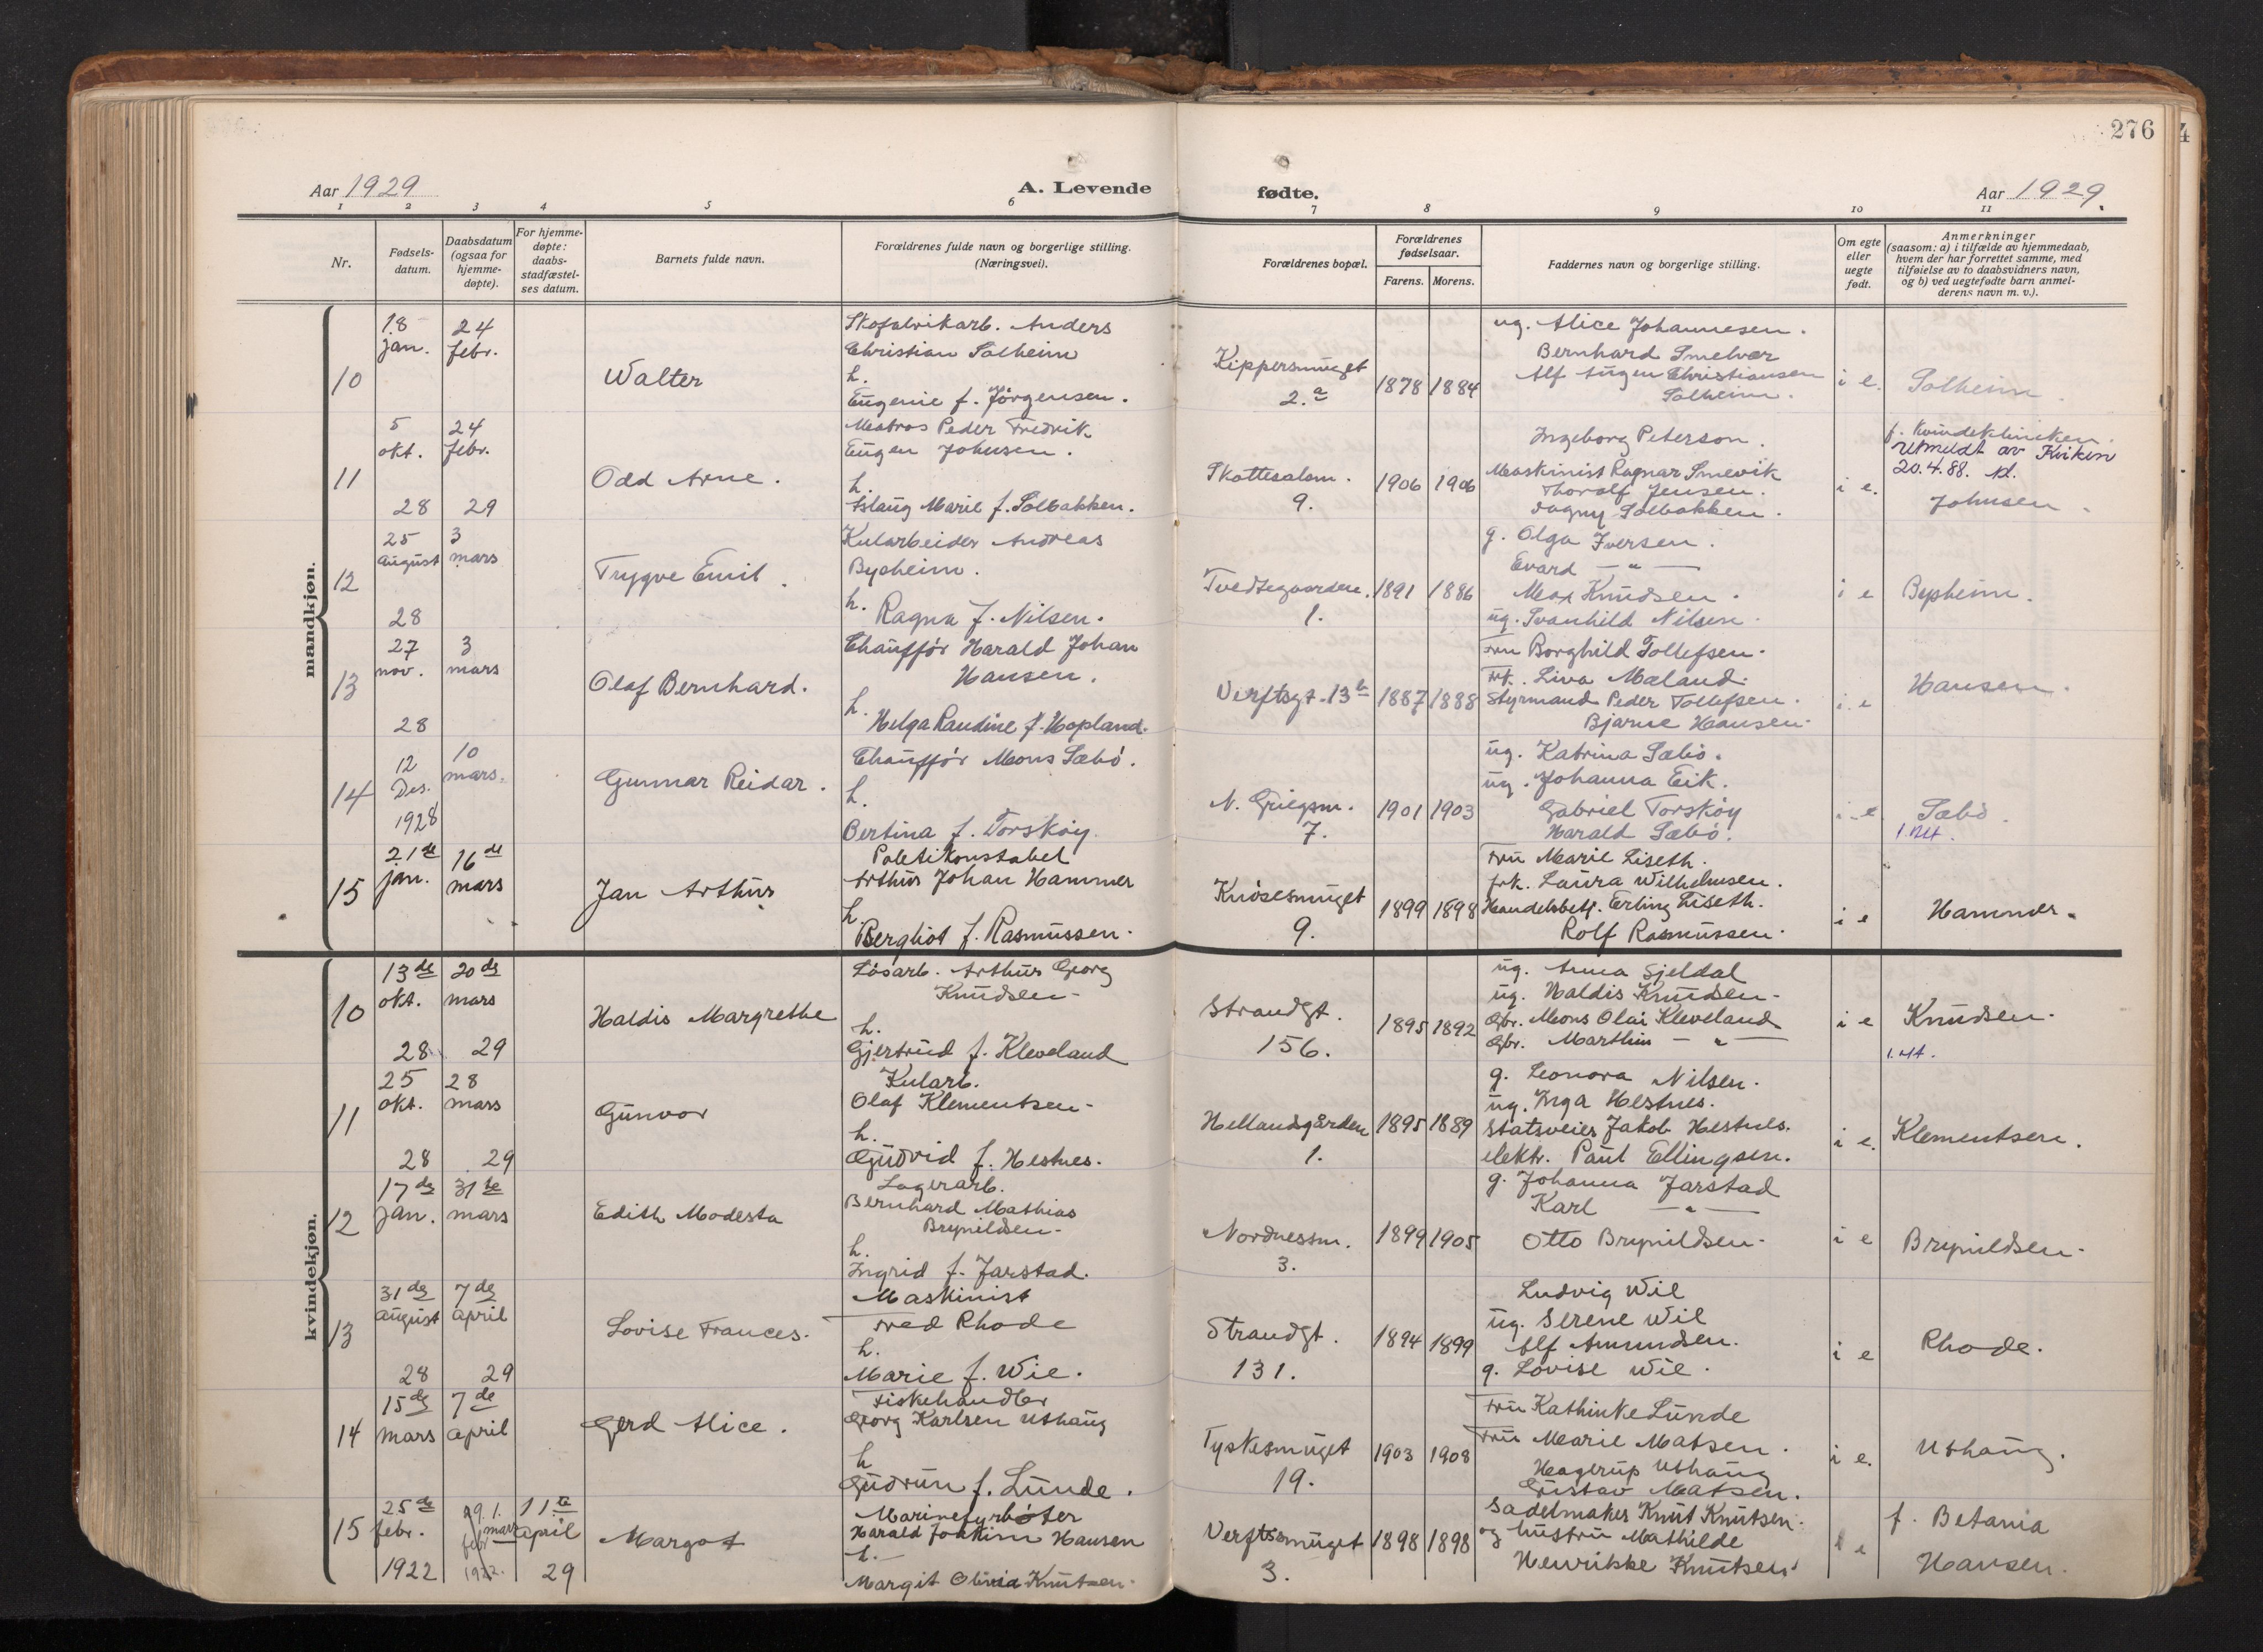 276
Aar 1929
A. Levende
fødte.
Aar 1929.
1 2 3 4 5 6 7 8 9 10 11
Nr.
Fødsels-
datum.
Daabsdatum
(ogsaa for
hjemme-
døpte).
For hjemme-
døpte:
daabs-
stadfæstel-
ses datum.
Barnets fulde navn.
Forældrenes fulde navn og borgerlige stilling.
(Næringsvei).
Forældrenes bopæl.
Forældrenes
fødselsaar.
Farens. Morens.
Faddernes navn og borgerlige stilling.
Om egte
eller
uegte
født.
Anmerkninger
(saasom: a) i tilfælde av hjemmedaab,
hvem der har forrettet samme, med
tilføielse av to daabsvidners navn,
og b) ved uegtefødte barn anmel-
derens navn m. v.).
mandkjøn.
10
18
jan.
24
febr.
Walter
Skofabrikarb. Anders
Christian Solheim
h.
Eugenie f. Jørgensen.
Kippersmuget
2.a
1878 1884
ug. Alice Johannesen.
Bernhard Smelvær
Alf Eugen Christiansen
Solheim.
i e.
Solheim
11
5
okt.
28
24
febr.
29
Odd Arne.
Matros Peder Fredrik
Eugen Johnsen.
h.
Aslaug Marie f. Solbakken.
Skottesalm.
9.
1906 1906
Ingeborg Peterson.
Maskinist Ragnar Smevik
Thoralf Jensen.
Dagny Solbakken.
i e.
f. Kvindeklinikken.
Utmeldt av Kirken
20.4.88.
Johnsen
12
25
august
28
3
mars
Trygve Emil.
Kularbeider Andreas
Bysheim.
h. Ragna f. Nilsen.
Tvedtegaarden.
1.
1891 1886
g. Olga Iversen.
Evard — " —
Max Knudsen.
ug. Svanhild Nilsen
i e
Bysheim.
13
27
nov.
28
3
mars
Olaf Bernhard.
Chauffør Harald Johan
Hansen.
h. Helga Randine f. Hopland.
Verftsgt. 13 b
1887 1888
Fru Borghild Tollefsen.
Frk. Liva Mæland.
Styrmand Peder Tollefsen.
Bjarne Hansen.
i e
Hansen.
14
12
Des.
1928
10
mars.
Gunnar Reidar.
Chauffør Mons Sæbø.
h.
Bertina f. Torskøy.
N. Griegsm.
7.
1901 1903
ug. Katrina Sæbø.
ug. Johanna Eik.
Gabriel Torskøy
Harald Sæbø.
i e
Sæbø
15
21de
jan.
16de
mars
Jan Arthur
Politikonstabel
Arthur Johan Hammer
h.
Bergliot f. Rasmussen.
Knøsesmuget
9.
1899 1898
Fru Marie Liseth.
frk. Laura Wilhelmsen.
Handelsbetj. Erling Liseth.
Rolf Rasmussen.
i e
Hammer.
kvindekjøn.
10
13de
okt.
28
20de
mars
29
Haldis Margrethe
Løsarb. Arthur Georg
Knudsen
h.
Gjertrud f. Kleveland
Strandgt.
156.
1895 1892
ug. Anna Gjeldal
ug. Haldis Knudsen
Gbr. Mons Olai Kleveland
Gbr. Marthin — " —
i e
Knudsen.
11
25
okt.
28
28
mars
29
Gunvor
Kularb.
Olaf Klementsen
h.
Gudrid f. Hestnes.
Hellandsgården
1.
1895 1889
g. Leonora Nilsen.
ug. Inga Hestnes.
Statsveier Jakob Hestnes.
elektr. Paul Ellingsen.
i e.
Klementsen.
12
17de
jan.
31te
mars
Edith Modesta
Lagerarb.
Bernhard Mathias
Brynildsen
h.
Ingrid f. Jarstad.
Nordnessm.
3.
1899 1905
g. Johanna Jarstad
Karl — " —
Otto Brynildsen
i e
Brynildsen
13
31de
august
28
7de
april
29
Lovise Frances.
Maskinist
Fred Rhode
h.
Marie f. Wie.
Strandgt.
131.
1894 1899
Ludvig Wil
ug. Serene Wil
Alf Amundsen.
g. Lovise Wie.
i e
Rhode.
14
15de
mars
7de
april
Gerd Alice.
Fiskehandler
Georg Karlsen Uthaug
h
Gudrun f. Lunde.
Tyskesmuget
19.
1903 1908
Fru Kathinke Lunde
Fru Marie Matsen.
Hagerup Uthaug
Gustav Matsen.
i e.
Uthaug.
15
25de
febr.
1922
mars
11te
april
29
Margot
Marinefyrbøter
Harald Joakim Hansen
h.
Margit Olivia Knutsen
Verftssmuget
3.
1898 1898
Sadelmaker Knut Knutsen.
og hustru Mathilde
Henrikke Knutsen.
i e
f. Betania
Hansen.